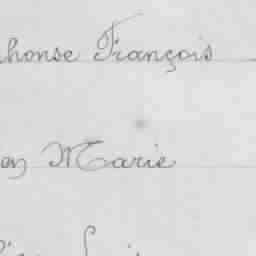 lphonse François
en Marie